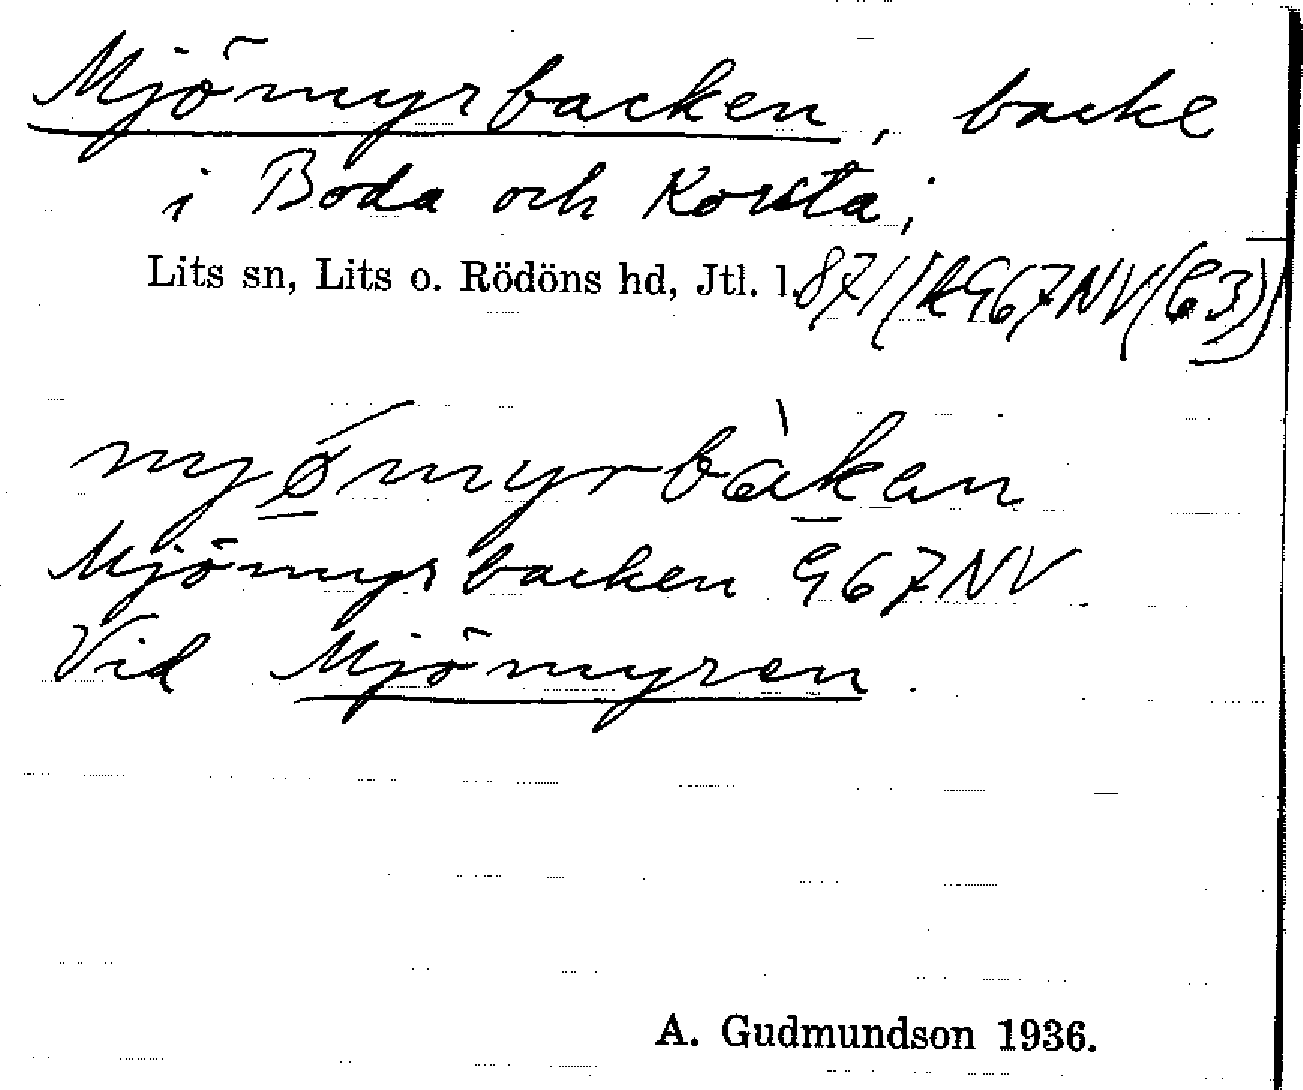 Mjömyrbacken, backe
i Boda och Korsta,
Lits sn, Lits o. Rödöns hd, Jtl. l. 871/(R967NV(63))
Mjömyrbacken 967NV
Vid Mjömyren.
A. Gudmundson 1936.